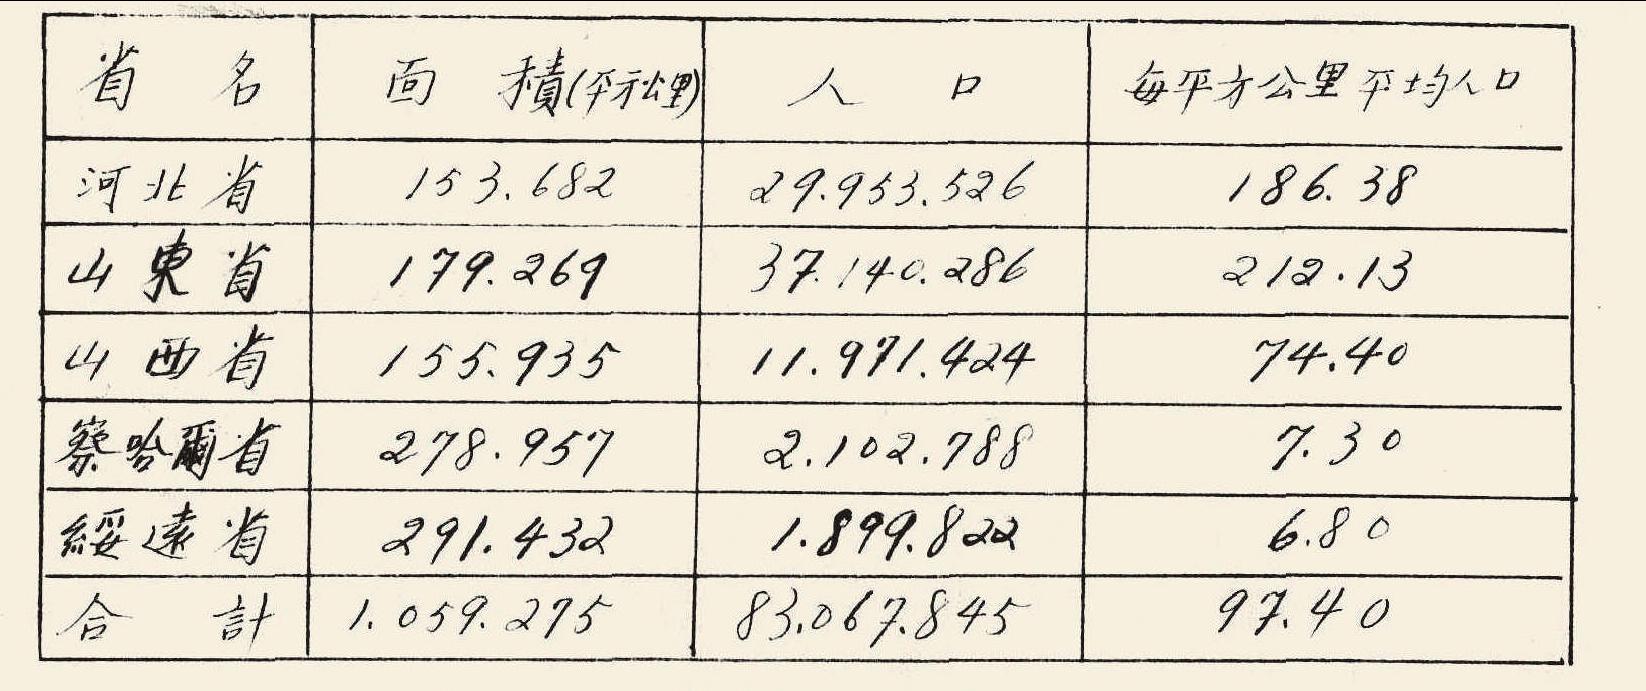 省名 面積(平方公里) 人口 每平方公里平均人口
河北省 153.682 29.953.526 186.38
山東省 179.269 37.140.286 212.13
山西省 155.935 11.971.424 74.40
察哈爾省 278.957 2.102.788 7.30
綏遠省 291.432 1.899.822 6.80
合計 1.059.275 83.067.845 97.40